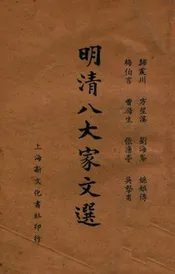 歸震川 方望溪 劉海峯 姚姬傳
梅伯言 曾滌生 張濂亭 吳摯甫
明清八大家文選
上海新文化書社印行